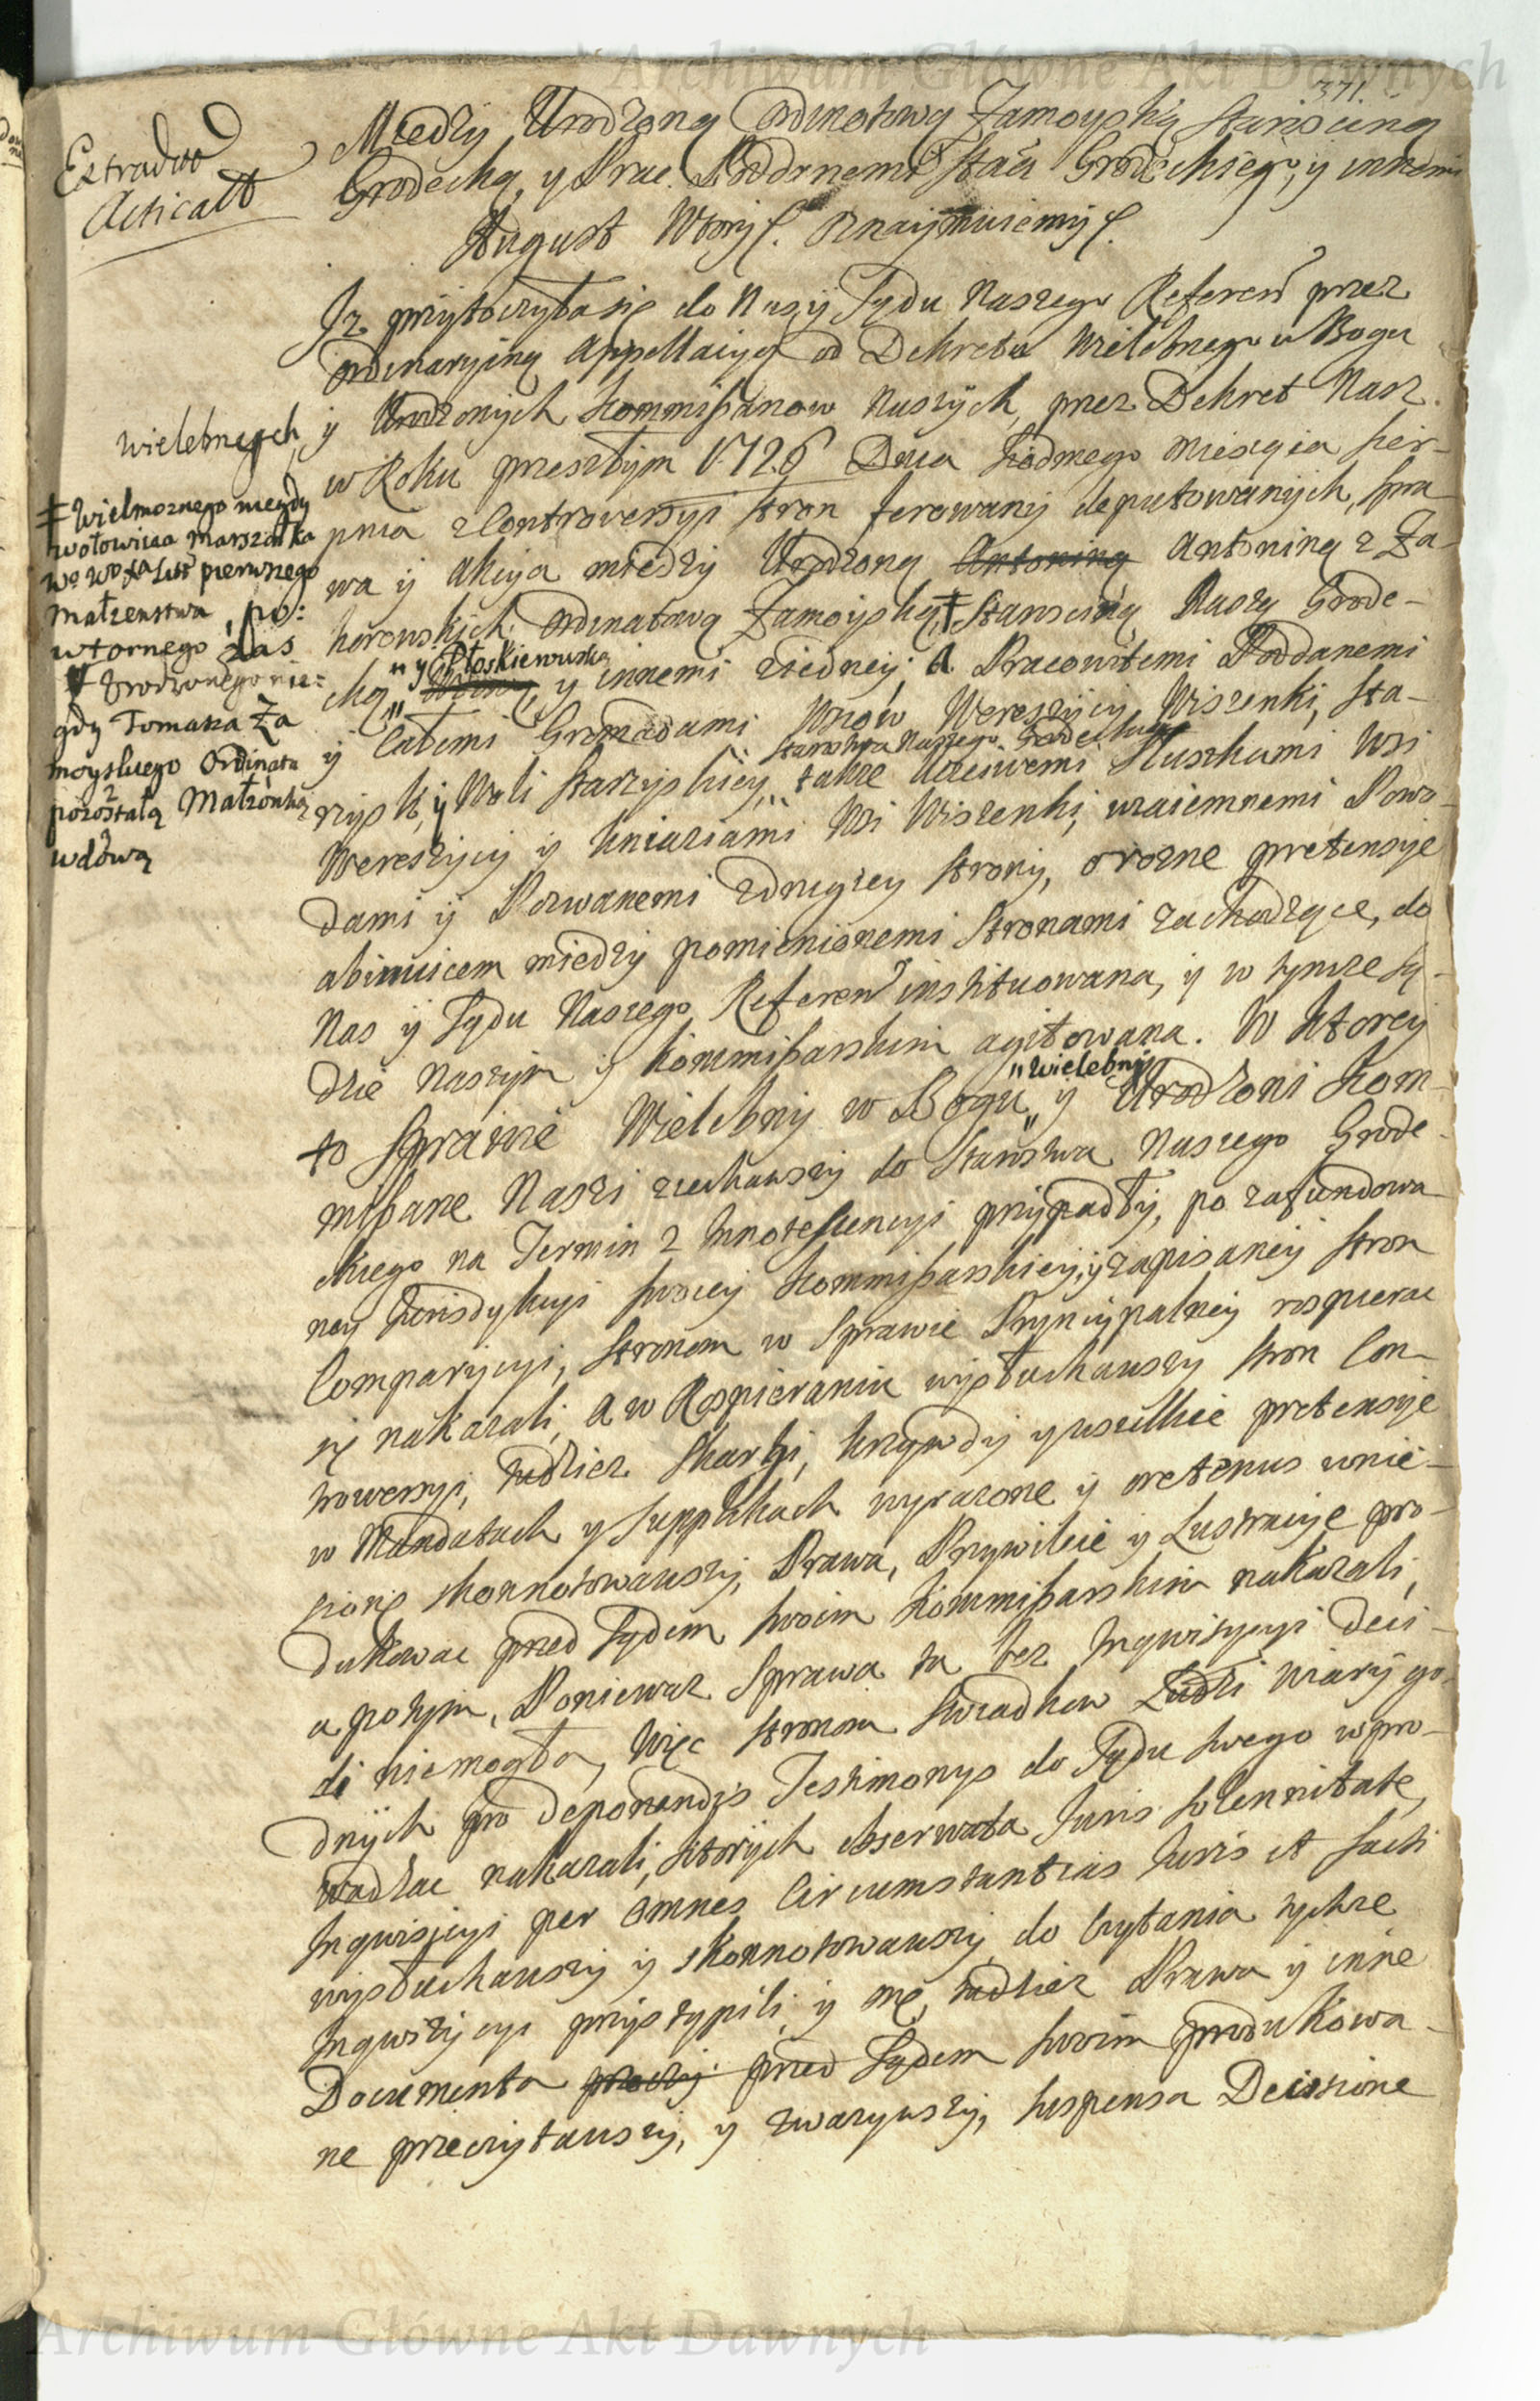 371.
Extradit
Acticatt
Miedzy Urodzoną Ordinatową Zamoyską Starosciną
Grodecką, y Prac. Poddanemi Stars Grodeckiego, y innemi
August Wtory. Oznaymuiemy.
Iz przytoczyła się do Nas y Sądu Naszego Referen przez
ordinaryiną Appellacyą od Dekretu Wielebnego w Bogu
Wielebnych,
y Urodzonych Kommissarzow Naszych, przez Dekret Nasz
w Roku przeszłym 1726 Dnia siodmego Miesiąca Sier-
pnia z Controversyi stron ferowany deputowanych, Spra
wa y Akcya miedzy Urodzoną Antoniną Antoniną z Za-
horowskich Ordinatową Zamoyską, ‡ Starosciną Naszą Grode-
cką " y Płoskiewuską y innemi z iedney; a Pracowitemi Poddanemi
y Całemi Gromadami Wsiow Wereszycy, Wiszenki, Sta-
Starostwa Naszego Grodeckiego
rzysk, y Woli Starzyskiey, " takze Uczciwemi Sluzkami Wsi
Wereszycy y Kniaziami Wsi Wiszenki, wzaiemnemi Powo-
dami y Pozwanemi z drugiey strony, o rozne pretensye
abinuicem miedzy pomienionemi Stronami zachodzące, do
Nas y Sądu Naszego Referen instituowana, y w tymze Są-
dzie Naszym y Kommissarskim agitowana. W ktorey
to Sprawie Wielebny w Bogu " y " Wielebny Urodzeni Kom-
missarze Naszi ziechawszy do Starostwa Naszego Grode-
ckiego na Termin z Innotescencyi przypadły, po zafundowa-
ney Jurisdykcyi swoiey Kommissarskiey, y zapisaney stron
Comparycyi, Stronom w Sprawie Pryncypalney rospierac
się nakazali, a w Rospieraniu wysłuchawszy stron Con-
trowersyi, tudziez Skargi, krzywdy y wszelkie pretensye
w Mandatach y Supplikach wyrazone y oretenus wnie-
sione skonnotowawszy, Prawa, Przywileie y Lustracye pro-
dukowac przed Sądem swoim Kommissarskim nakazali,
a potym, Poniewaz Sprawa ta bez Inqwizycyi deci-
di niemogła, Więc stronom Swiadkow Ludzi wiary go-
dnych pro deponendis Testimonys do Sądu swego wpro-
wadzac nakazali, ktorych observata Juris solennitate,
Inqwizycyi per omnes Circumstantias Juris et facti
wysłuchawszy y skonnotowawszy, do Czytania tychze
Inqwizycyi przystąpili, y one, tudziez Prawa y inne
Documenta przeczy przed Sądem swoim produkowa-
ne przeczytawszy, y zwazywszy, suspensa Decisione
‡ Wielmoznego niegdy
Wołowicza Marszałka
Wo Xa Litt pierwszego
Małzenstwa, po:
wtornego zas
Urodzonego nie:
gdy Tomasza Za
moyskiego Ordinata
pozostałą Małzonką
wdową
Archiwum Główne Akt Dawnych
Archiwum Główne Akt Dawnych